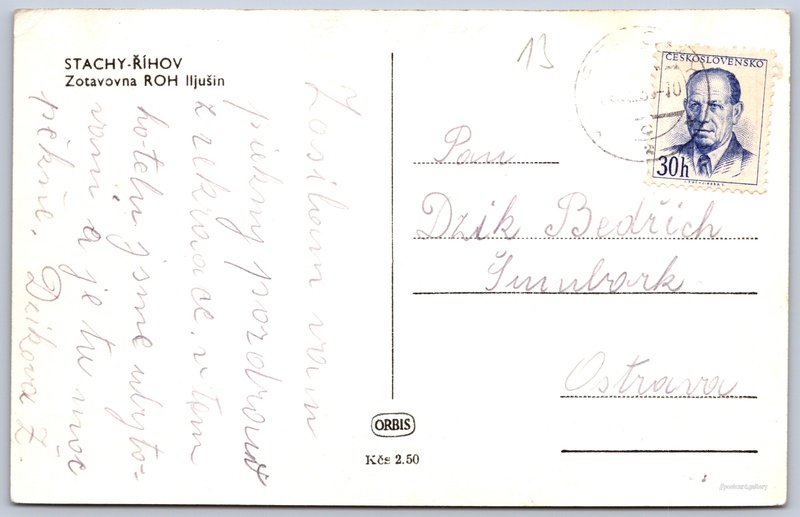 STACHY-ŘÍHOV
Zotavovna ROH Iljušin
Zasílam vam
piekny pozdrav
z rekreace. v tem
hotelu jsme ubyto-
vani a je tu moc
pěkňe. Dzikova Ž.
13
ČESKOSLOVENSKO
30h
Pan
Dzik Bedřich
Šumbark
Ostrava
ORBIS
Kčs 2.50